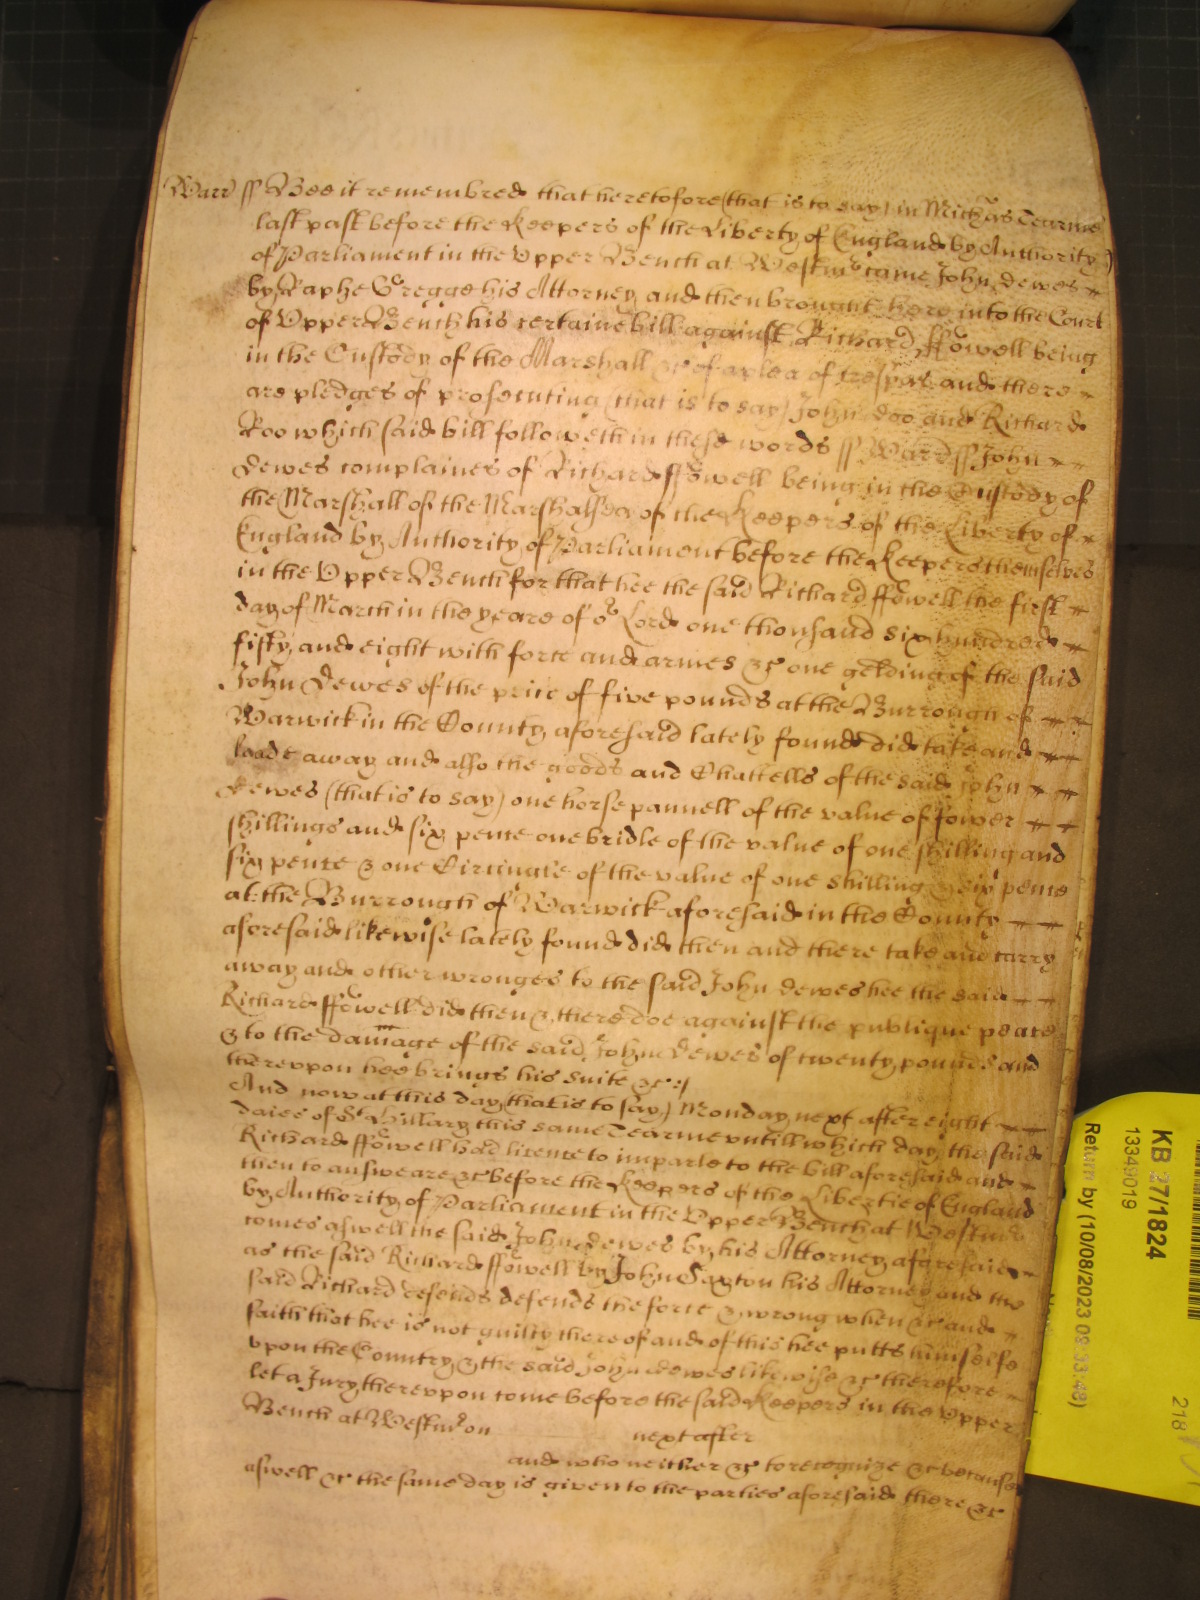 Warr ss Bee it remembred that heretofore (that is to say) in Michas Tearme
last past before the Keepers of the Liberty of England by Authority
of Parliament in the Upper Bench at Westmr came John Dewes
by Raphe Gregge his Attorney and then brought here into the Court
of Upper Bench his certaine bill against Richard ffowell being
in the Custody of the Marshall &c of a plea of trespas and there
are pledges of prosecuting (that is to say) John doo and Richard
Roo which said bill followeth in these words ss Warr ss John
Dewes complaines of Richard ffowell being in the Custody of
the Marshall of the Marshalsea of the Keepers of the Liberty of
England by Authority of Parliament before the Keepers themselves
in the Upper Bench for that hee the said Richard ffowell the first
day of March in the yeare of or Lord one thousand six hundred
fifty and eight with force and armes &c one gelding of the said
John Dewes of the price of five pounds at the Burrough of
Warwick in the County aforesaid lately found did take and
leade away and also the goods and Chattells of the said John
Dewes (that is to say) one horse pannell of the value of fower
shillings and six pence one bridle of the value of one shilling and
six pence & one Circingle of the value of one shilling & six pence
at the Burrough of Warwick aforesaid in the County
aforesaid likewise lately found did then and there take and carry
away and other wronges to the said John Dewes hee the said
Richard ffowell did then & there doe against the publique peace
& to the damage of the said John Dewes of twenty pounds and
thereupon hee brings his suite &c
And now at this day (that is to say) Monday next after eight
daies of St Hillary this same Tearme untill which day the said
Richard ffowell had licence to imparle to the bill aforesaid and
then to answeare &c before the Keepers of the Libertie of England
by Authority of Parliament in the Upper Bench at Westmr
comes aswell the said John Dewes by his Attorney aforesaid
as the said Richard ffowell by John Saxton his Attorney and the
said Richard defends defends the force & wrong when &c and
saith that hee is not guilty thereof and of this hee putts himselfe
upon the Country & the said John Dewes likewise &c therefore
let a Jury thereupon come before the said Keepers in the Upper
Bench at Westmr on next after
and who neither &c to recognize &c because
aswell &c the same day is given to the parties aforesaid there &c
KB 27/1824
13349019
Return by (10/08/2023 09:33:48)
218